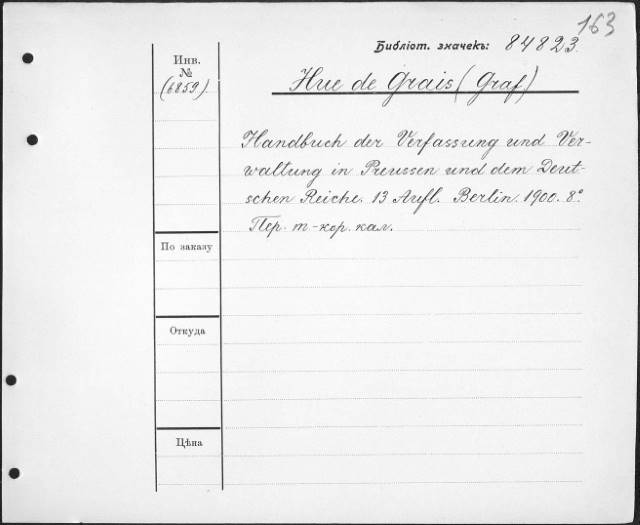 163
Библіот. значекъ: 84823.
Инв.
№
(6859)
Hue de Grais (Graf)
Handbuch der Verfassung und Ver-
waltung in Preussen und dem Deut-
schen Reiche. 13 Aufl. Berlin. 1900. 8°
Пер. т-кор. кал.
По заказу
Откуда
Цѣна